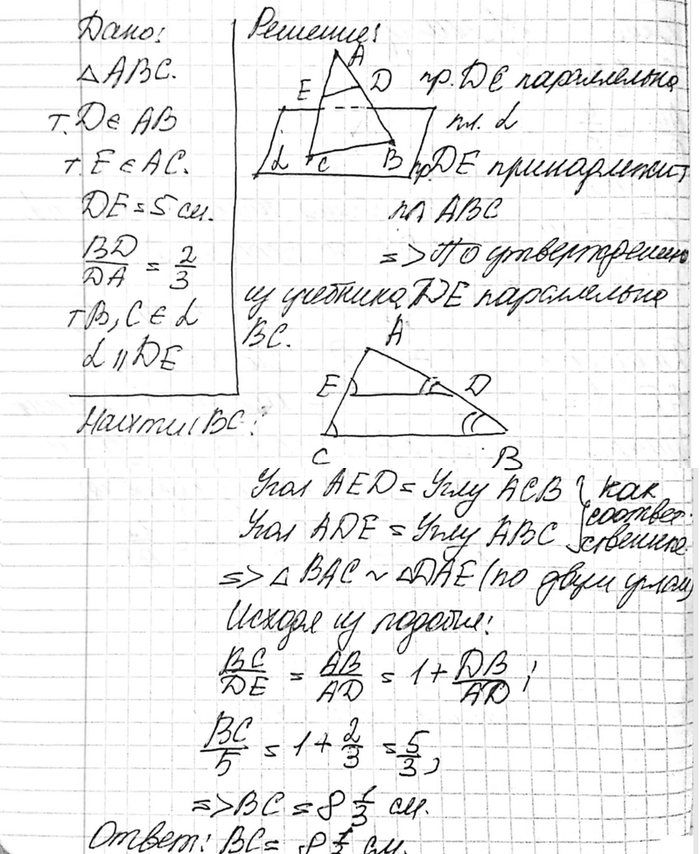 Дано:
△ABC.
т. D ∈ AB
т. E ∈ AC.
DE = 5 см.
BD/DA = 2/3
т B, C ∈ α
α || DE
Найти: BC?
Решение:
A
E D
α C B
пр. DE параллельна
пл. α
пр DE принадлежит
пл ABC
=> По утверждению
из учебника DE параллельна
BC.
A
E D
C B
Угол AED = Углу ACB } как
Угол ADE = Углу ABC соответ-
ственные
=> △ BAC ~ △DAE (по двум углам)
Исходя из подобия:
BC/DE = AB/AD = 1 + DB/AD;
BC/5 = 1 + 2/3 = 5/3,
=> BC = 8 1/3 см.
Ответ: BC = 8 1/3 см.